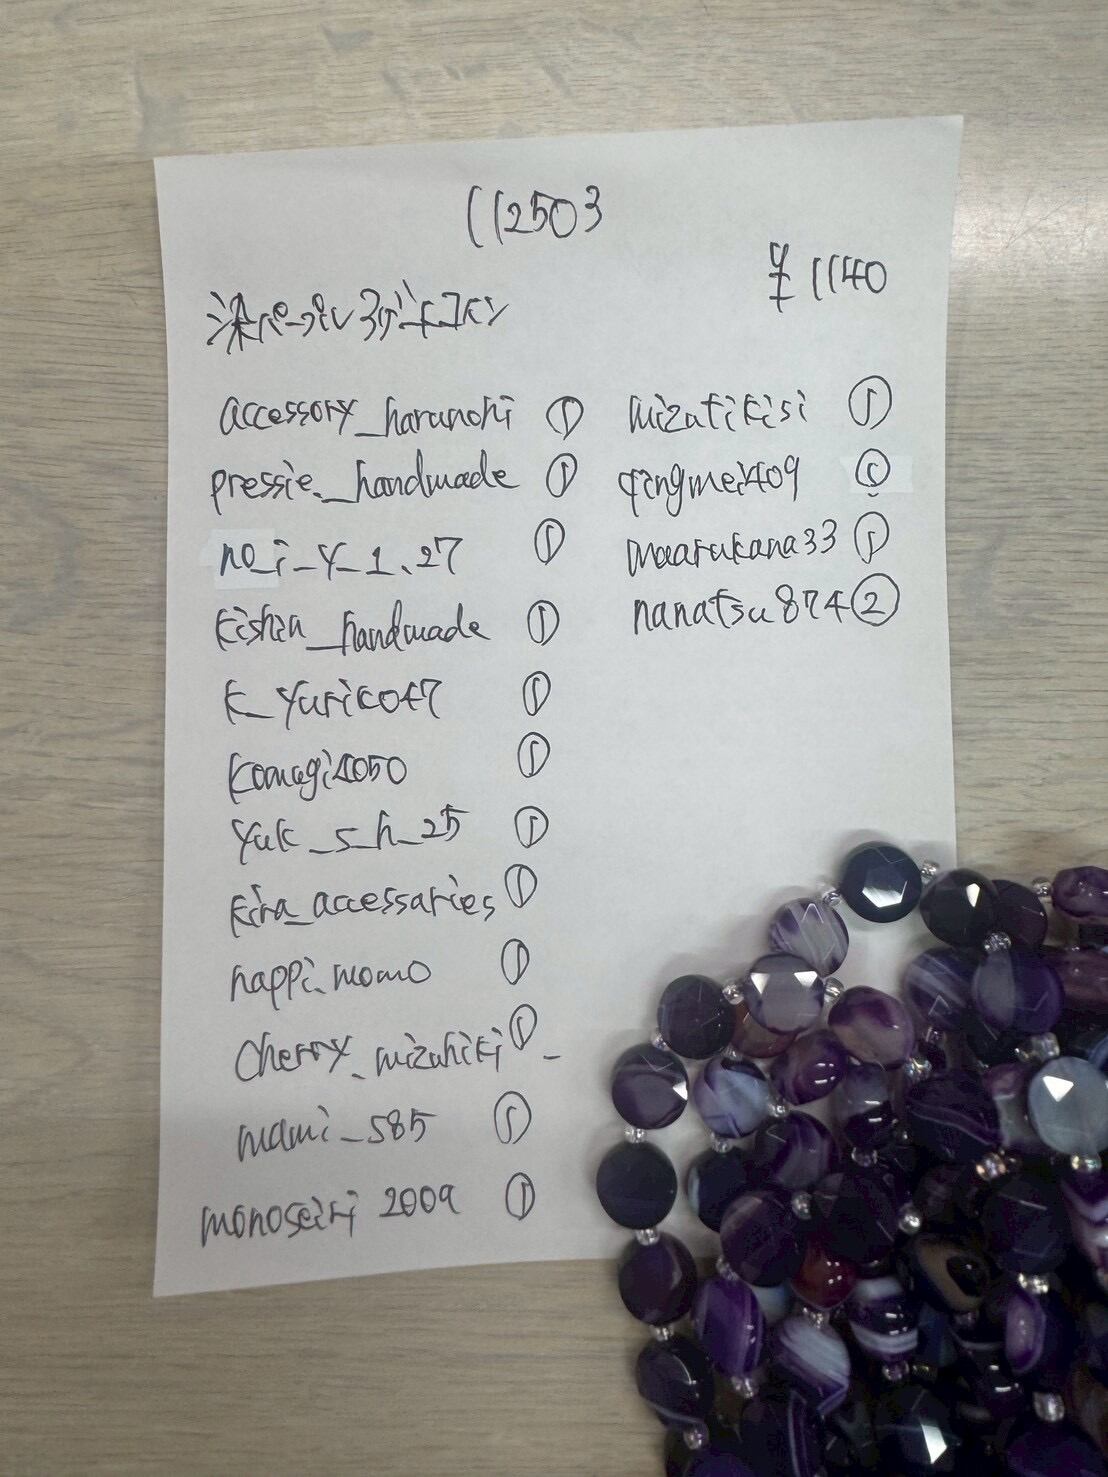 112503
¥1140
染パープル3ゲキコイン
accessory_harunohi ①
pressie._handmade ①
no_i_y_1.27 ①
kishin_handmade ①
k_yuriko47 ①
komugi4050 ①
yuk_s_h_25 ①
kira_accessaries ①
happi.momo ①
cherry_mizuhiki_ ①
mami_585 ①
monoseiri 2009 ①
mizutikisi ①
qingmei409
maarukana33 ①
nanatsu874 ②